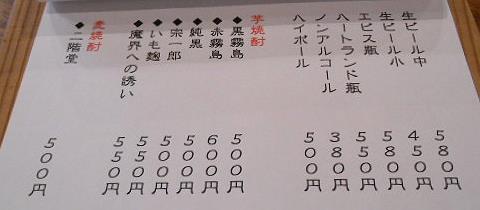 生ビール中 580円
生ビール小 450円
エビス瓶 580円
ハートランド瓶 550円
ノンアルコール 380円
ハイボール 500円
芋焼酎
◆黒霧島 500円
◆赤霧島 600円
◆純黒 500円
◆宗一郎 500円
◆いも麹 500円
◆魔界への誘い 550円
麦焼酎
◆二階堂 500円